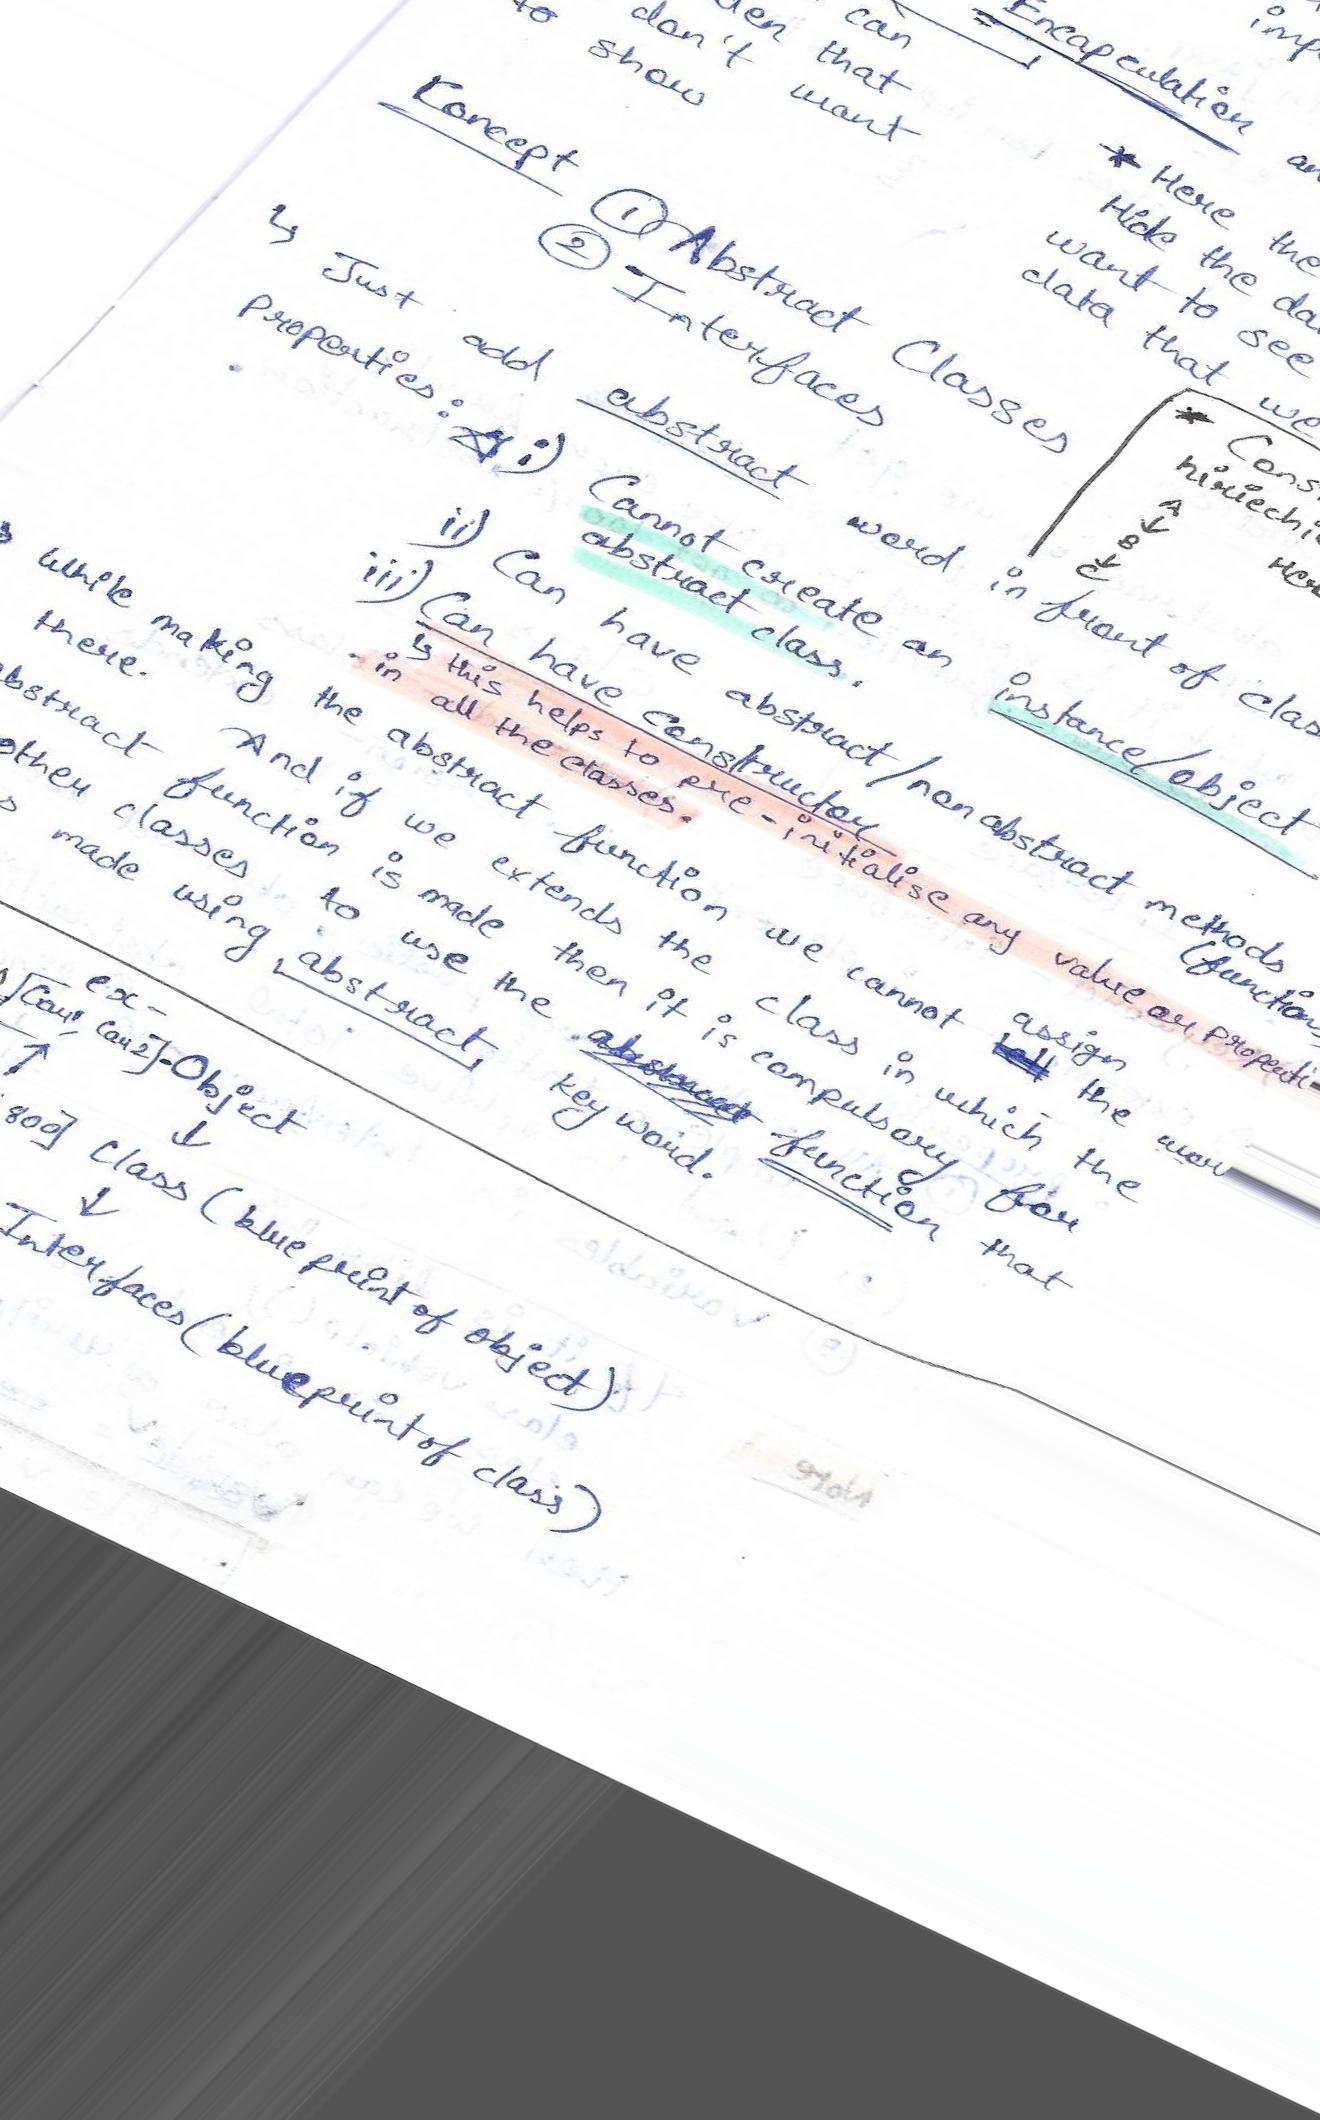 can
den that
to don't want
show
Encapsulation
* Here the
Hide the da
want to see
data that we
Concept ① Abstract Classes
② Interfaces
↳ Just add abstract word in front of clas
Properties:
i) Cannot create an instance/object
abstract class.
ii) Can have abstract/nonabstract methods
(function
iii) Can have constructor
↳ this helps to pre-initialise any value or properti
in all the classes.
* Cons
hiriechi
A
↓
B
↓
C
Her
while making the abstract function we cannot assign the
there. And if we extends the class in which the
bstract function is made then it is compulsory for
other classes to use the function that
s made using abstract, keyword.
ex-
[Car1, Car2]-Object
↑ ↓
800] Class (blue print of object)
↓
Interfaces (blueprint of class)
Note